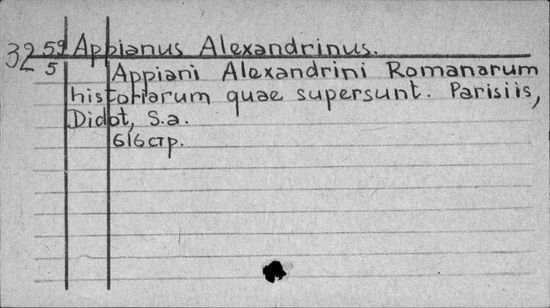 32 59 Appianus Alexandrinus.
5 Appiani Alexandrini Romanarum
historiarum quae supersunt. Parisiis,
Didot, S.a.
616 стр.